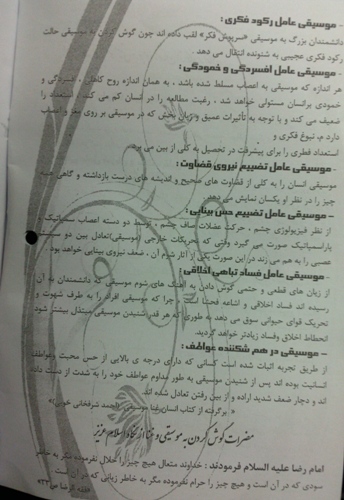 - موسیقی عامل رکود فکری :
دانشمندان بزرگ به موسیقی «سرپوش فکر» لقب داده اند چون گوش کردن به موسیقی حالت
رکود فکری عجیبی به شنونده انتقال می دهد .
- موسیقی عامل افسردگی و خمودگی :
هر اندازه که موسیقی به اعصاب مسلط شده باشد ، به همان اندازه روح کاهلی ، افسردگی و
خمودی برانسان مستولی خواهد شد ، رغبت مطالعه را در انسان کم می کند ، استعداد را
ضعیف می کند و با توجه به تأثیرات عمیق و زیان بخش که در موسیقی بر روی مغز و اعصاب
دارد می نبوغ فکری و
استعداد فطری را برای پیشرفت در تحصیل به کلی از بین می برد.
- موسیقی عامل تضییع نیروی قضاوت :
موسیقی انسان را به کلی از قضاوت های صحیح و اندیشه های درست بازداشته و گاهی همه
چیز را در نظر او یکسان نمایش می دهد.
- موسیقی عامل تضییع حس بینایی :
از نظر فیزیولوژی چشم ، حرکت عضلات صاف چشم ، توسط دو دسته اعصاب سمپاتیک
پاراسمپاتیک صورت می گیرد وقتی که تحریکات خارجی (موسیقی) تعادل بین دو سیستم
عصبی را به هم می زند در این صورت یکی از آثار شوم آن ، ضعف نیروی بینایی خواهد بود.
- موسیقی عامل فساد تباهی اخلاقی :
از زیان های قطعی و حتمی گوش دادن به آهنگ های شوم موسیقی که دانشمندان به آن
رسیده اند فساد اخلاقی و اشاعه فحشا است ، چرا که موسیقی افراد را به طرف شهوت و
تحریک قوای حیوانی سوق می دهد به طوری که هر قدر شنیدن موسیقی مبتذل بیشتر شود
انحطاط اخلاق وفساد زیادتر خواهد گردید.
- موسیقی در هم شکننده عواطف :
از طریق تجربه اثبات شده است کسانی که دارای درجه ی بالایی از حس محبت وعواطف
انسانیت بوده اند پس از شنیدن موسیقی به طور مداوم عواطف خود را به شدت از دست داده
اند و دچار ضعف شدید اراده و از بین رفتن تعادل شده اند
« برگرفته از کتاب انسان موسیقی (احمد شرفخانی خویی)»
مضرات گوش کردن به موسیقی و غنا از نگاه اسلام عزیز
امام رضا علیه السلام فرمودند : خداوند متعال هیچ چیز را حلال نفرموده مگر به خاطر
سودی که در آن است و هیچ چیز را حرام نفرموده مگر به خاطر زیانی که در آن است